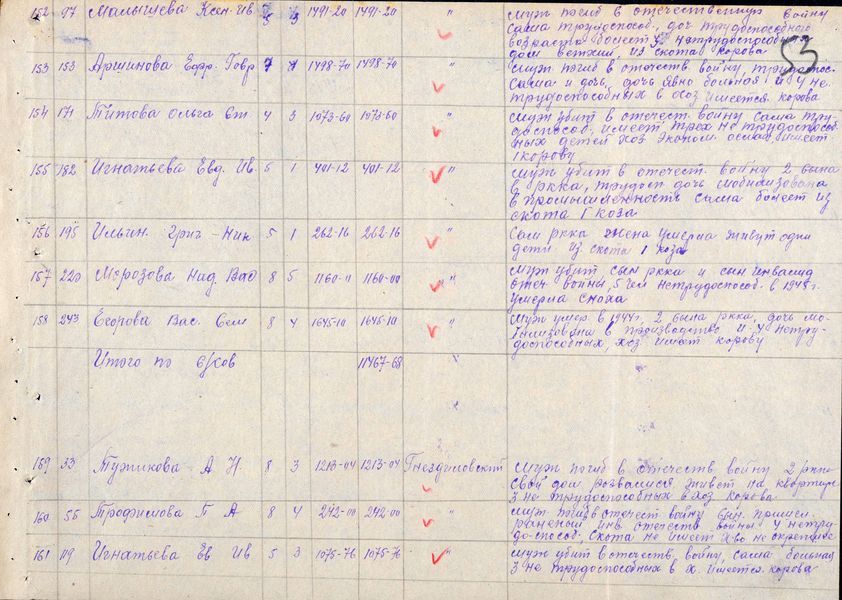 152 97 Малышева Ксен. Ив 5 3 1491-20 1491-20 " муж погиб в отечественную войну
сама трудоспособ. доч трудоспособного
возраста болеет 3 нетрудоспособных
дом ветхий, из скота корова
53
153 153 Аршинова Ефр. Гавр 7 4 1498-70 1498-70 " муж погиб в отечеств войну, трудоспос.
сама и дочь, дочь явно больная и 4 не
трудоспособных в хоз имеется корова
154 171 Титова Ольга Ст 4 3 1073-60 1073-60 " муж убит в отечеств. войну сама тру-
доспособ. имеет трех не трудоспособ-
ных детей хоз. эконом. ослаб имеет
1 корову
155 182 Игнатьева Евд. Ив. 5 1 401-12 401-12 " муж убит в отечест. войну 2 сына
в ркка, трудосп дочь мобилизована
в промышленность сама болеет из
скота 1 коза
156 195 Ильин Григ - Ник 5 1 262-16 262-16 " Сам ркка жена умерла живут одни
дети из скота 1 коза
157 220 Морозова Над. Вас 8 5 1160-11 1160-00 " муж убит, сын ркка и сын инвалид
отеч. войны, 5 чел нетрудоспособ. в 1945 г.
умерла сноха
158 243 Егорова Вас. Сем 8 4 1645-10 1645-10 " муж умер в 1944 г. 2 сына ркка, дочь мо-
билизована в производство и 4 нетру-
доспособных, хоз. имеет корову
Итого по с/сов 11467-68 "
159 33 Тужикова А Н. 8 3 1213-04 1213-04 Гнездиловский муж погиб в отечеств войну 2 ркка
свой дом розвалися живет на квартире
3 не трудоспособных в хоз корова
160 55 Трофимова П А 8 4 242-00 242-00 " муж погиб в отечест войну сын пришел
раненый инв. отечеств войны 4 нетру-
до-способ. скота не имеет х-во не окрепшее
161 119 Игнатьева Ев Ив 5 3 1075-76 1075-76 " муж убит в отечеств. войну, сама больная
3 не трудоспособных в х. имеется корова